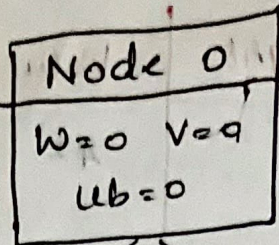 Node 0
W=0 V=0
Ub=0